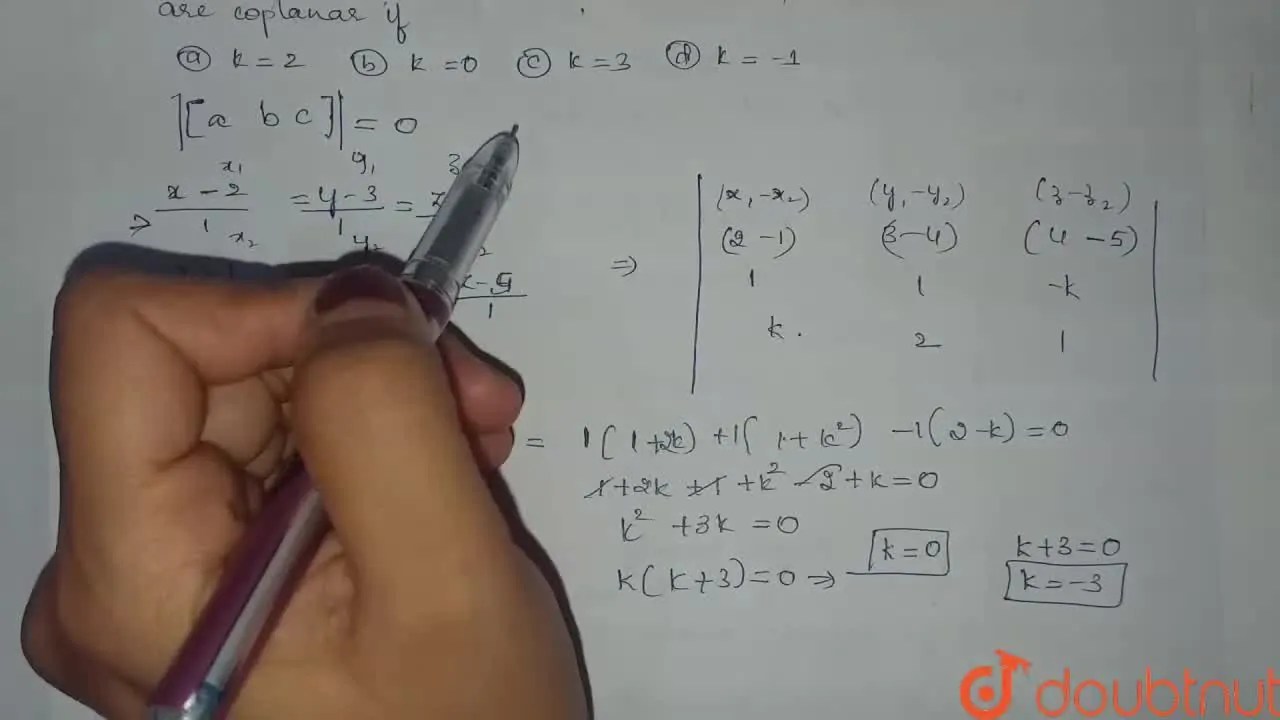 are coplanar if
(a) k = 2 (b) k = 0 (c) k = 3 (d) k = -1
|[a b c]| = 0
x₁ y₁ 3
⇒ x - 2 / 1 = y - 3 / 1 =
x₂ y₂ 2
- 5 / 1
(x₁ - x₂) (y₁ - y₂) (z - z₂)
⇒ (2 - 1) (3 - 4) (4 - 5)
1 1 -k
k. 2 1
= 1(1+2k) +1(1+k²) -1(2-k) = 0
1+2k+1+k²-2+k=0
k² +3k = 0
k(k+3)=0 ⇒ k=0 k+3=0
k=-3
doubtnut